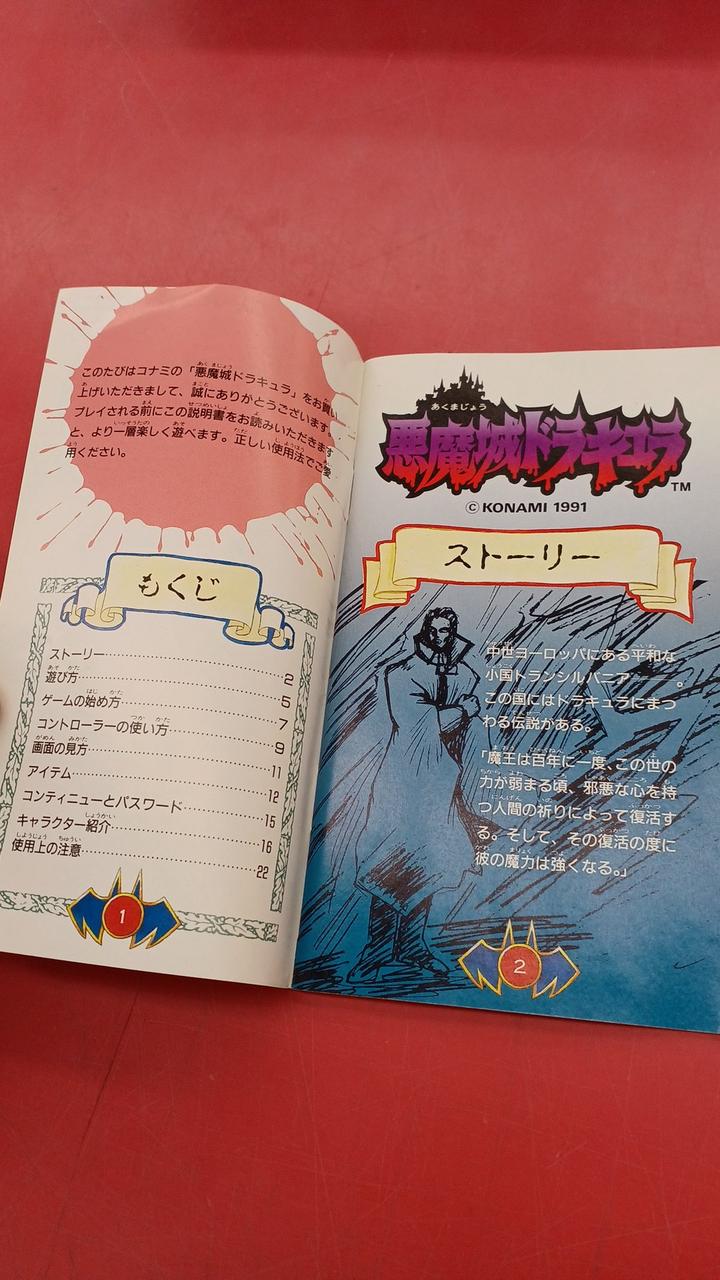 このたびはコナミの「悪魔城ドラキュラ」をお買い
上げいただきまして、誠にありがとうございます
プレイされる前にこの説明書をお読みいただきます
と、より一層楽しく遊べます。正しい使用法でご愛
用ください。
もくじ
ストーリー 2
遊び方 5
ゲームの始め方 7
コントローラーの使い方 9
画面の見方 11
アイテム 12
コンティニューとパスワード 15
キャラクター紹介 16
使用上の注意 22
1
あくまじょう
悪魔城ドラキュラ
TM
© KONAMI 1991
ストーリー
中世ヨーロッパにある平和な
小国トランシルバニア――。
この国にはドラキュラにまつ
わる伝説がある。
「魔王は百年に一度、この世の
力が弱まる頃、邪悪な心を持
つ人間の祈りによって復活す
る。そして、その復活の度に
彼の魔力は強くなる。」
2